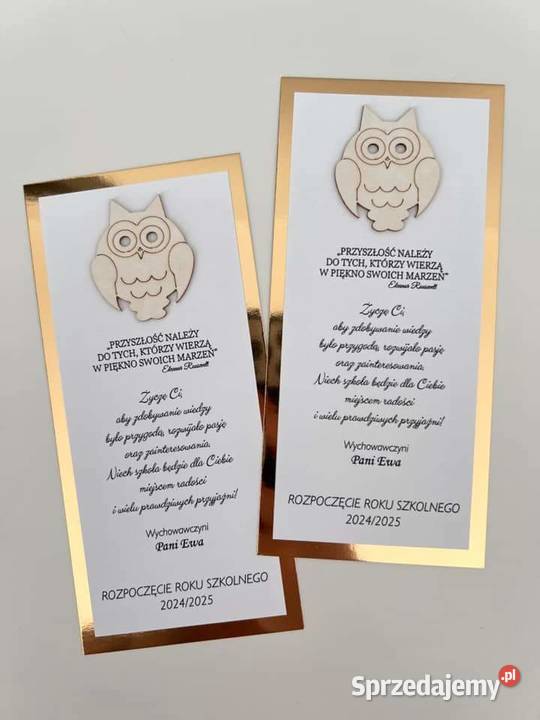 „PRZYSZŁOŚĆ NALEŻY
DO TYCH, KTÓRZY WIERZĄ
W PIĘKNO SWOICH MARZEŃ"
Eleonor Roosvelt
Życzę Ci,
aby zdobywanie wiedzy
było przygodą, rozwijało pasje
oraz zainteresowania.
Niech szkoła będzie dla Ciebie
miejscem radości
i wielu prawdziwych przyjaźni!
Wychowawczyni
Pani Ewa
ROZPOCZĘCIE ROKU SZKOLNEGO
2024/2025
„PRZYSZŁOŚĆ NALEŻY
DO TYCH, KTÓRZY WIERZĄ
W PIĘKNO SWOICH MARZEŃ"
Eleonor Roosvelt
Życzę Ci,
aby zdobywanie wiedzy
było przygodą, rozwijało pasje
oraz zainteresowania.
Niech szkoła będzie dla Ciebie
miejscem radości
i wielu prawdziwych przyjaźni!
Wychowawczyni
Pani Ewa
ROZPOCZĘCIE ROKU SZKOLNEGO
2024/2025
Sprzedajemy.pl